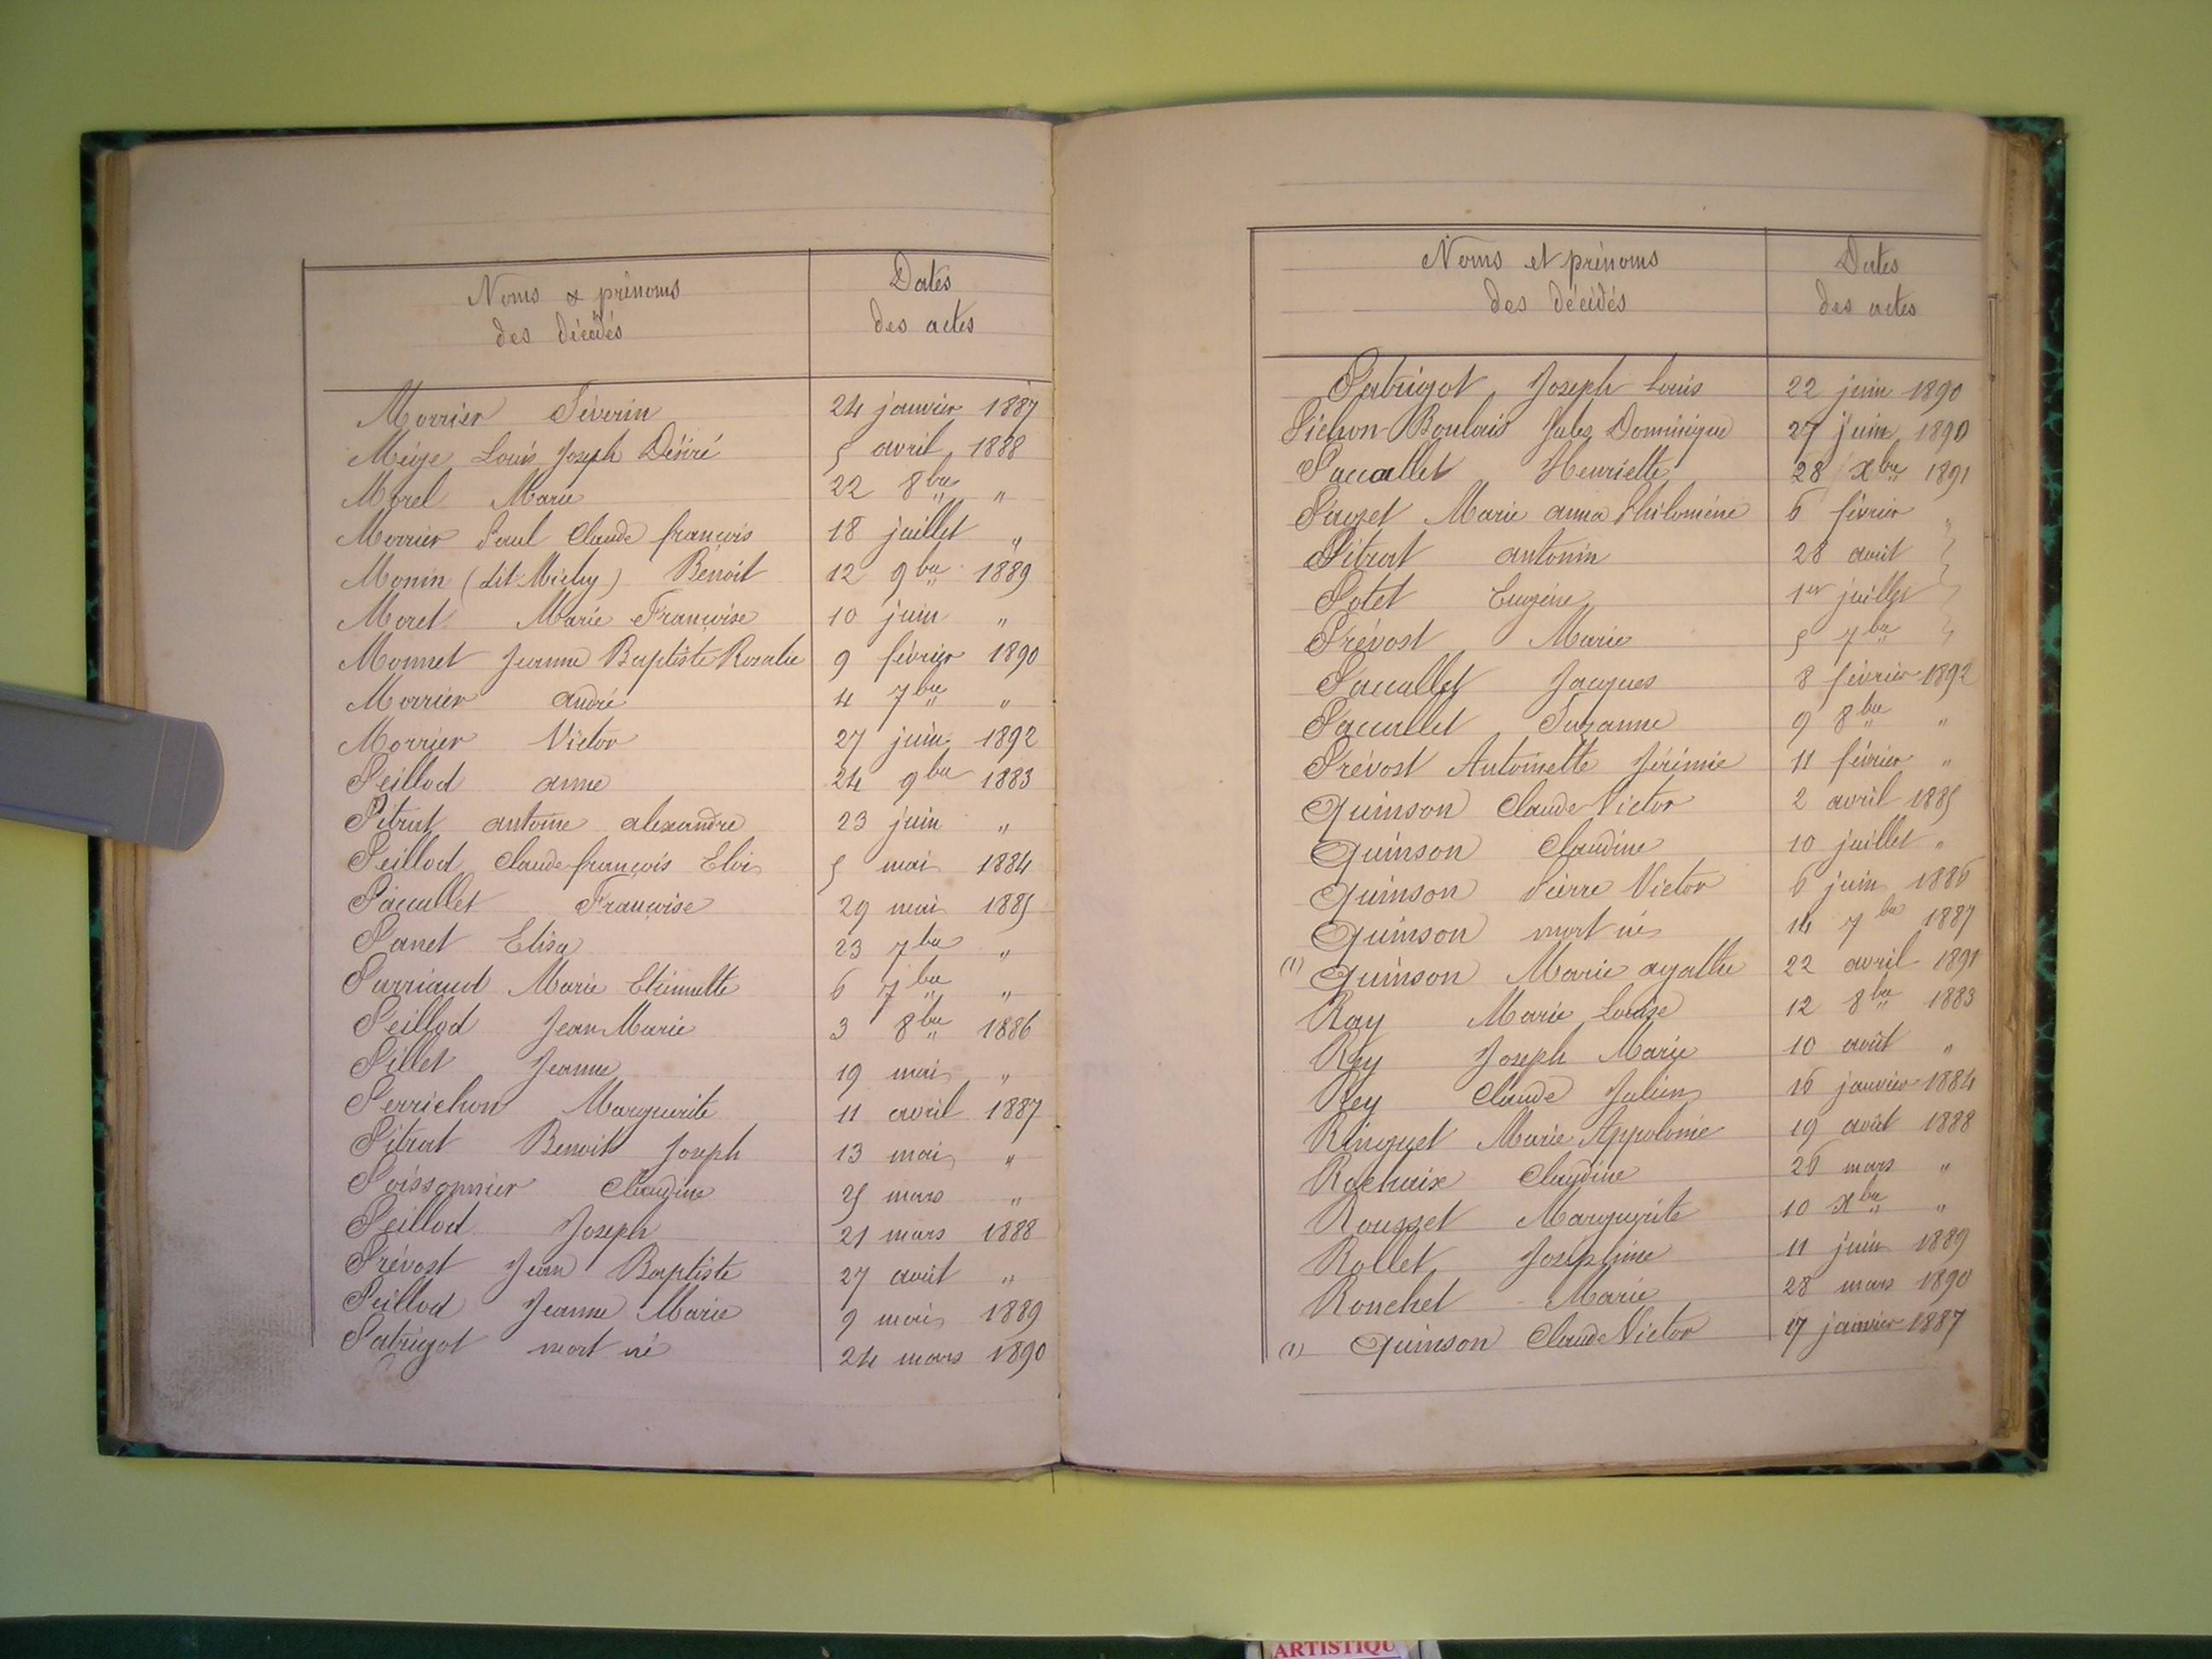 Noms & prénoms
des décédés
Dates
des actes
Morrier Séverin 24 janvier 1887
Miège Louis Joseph Désiré 5 avril 1888
Morel Marie 22 8bre "
Morrier Paul Claude françois 18 juillet "
Monin (dit Michy) Benoit 12 9bre 1889
Moret Marie Françoise 10 juin "
Monnet Jeanne Baptiste Rosalie 9 février 1890
Morrier andré 4 7bre "
Morrier Victor 27 juin 1892
Peillod anne 24 9bre 1883
Pitrat antoine alexandre 23 juin "
Peillod Claude françois Eloi 5 mai 1884
Paccallet Françoise 29 mai 1885
Panet Elisa 23 7bre "
Parriaud Marie Etiennette 6 7bre "
Peillod Jean Marie 3 8bre 1886
Pillet Jeanne 19 mai "
Perrichon Marguerite 11 avril 1887
Pitrat Benoit Joseph 13 mai "
Poissonnier Claudine 25 mars "
Peillod Joseph 21 mars 1888
Prévost Jean Baptiste 27 août "
Peillod Jeanne Marie 9 mai 1889
Patrigot mort né 24 mars 1890
Noms et prénoms
des décédés
Dates
des actes
Patrigot Joseph Louis 22 juin 1890
Pichon-Boulois Jules Dominique 27 juin 1890
Paccallet Henriette 28 xbre 1891
Marie anna Philomène 6 février "
Pitrat antonin 28 août "
Potet Eugène 1er juillet "
Prévost Marie 5 7bre "
Paccallet Jacques 8 février 1892
Paccallet Suzanne 9 8bre "
Prévost Antoinette Jérémie 11 février "
Quinson Claude Victor 2 avril 1885
Quinson Claudine 10 juillet "
Quinson Pierre Victor 6 juin 1886
Quinson mort né 14 7bre 1887
(1) Quinson Marie agathe 22 avril 1891
Ray Marie Louise 12 8bre 1883
Rey Joseph Marie 10 août "
Rey Claude Julien 16 janvier 1884
Rinquet Marie Appolonie 19 août 1888
Rochaix Claudine 26 mars "
Rousset Marguerite 10 xbre "
Rollet Joséphine 11 juin 1889
Ronchet Marie 28 mars 1890
(1) Quinson Claude Victor 17 janvier 1887
ARTISTIQU